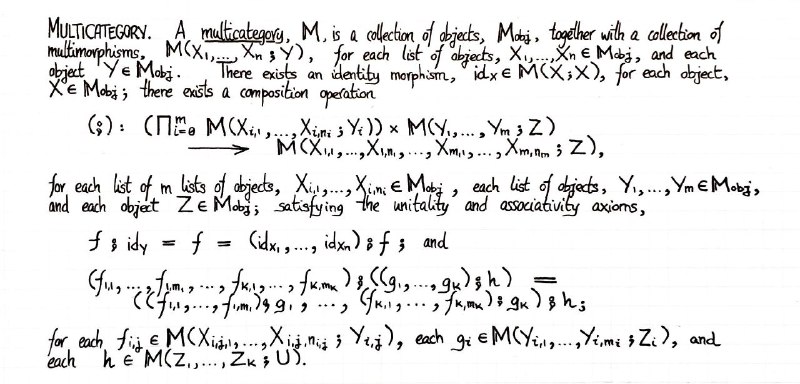 MULTICATEGORY. A multicategory, 𝕄, is a collection of objects, 𝕄obj, together with a collection of
multimorphisms, 𝕄(X₁,..., Xₙ ; Y), for each list of objects, X₁,...,Xₙ ∈ 𝕄obj, and each
object Y ∈ 𝕄obj. There exists an identity morphism, idₓ ∈ 𝕄(X ; X), for each object,
X ∈ 𝕄obj ; there exists a composition operation
(⨾) : (∏ᵐᵢ₌₀ 𝕄(Xᵢ,₁,..., Xᵢ,ₙᵢ ; Yᵢ)) × 𝕄(Y₁,..., Yₘ ; Z)
⟶ 𝕄(X₁,₁,..., X₁,ₙ₁,..., Xₘ,₁,..., Xₘ,ₙₘ ; Z),
for each list of m lists of objects, Xᵢ,₁,..., Xᵢ,ₙᵢ ∈ 𝕄obj, each list of objects, Y₁,..., Yₘ ∈ 𝕄obj,
and each object Z ∈ 𝕄obj ; satisfying the unitality and associativity axioms,
f ⨾ id_Y = f = (id_X₁,..., id_Xₙ) ⨾ f ; and
(f₁,₁,..., f₁,ₘ₁,..., fₖ,₁,..., fₖ,ₘₖ) ⨾ ((g₁,..., gₖ) ⨾ h) =
((f₁,₁,..., f₁,ₘ₁) ⨾ g₁,..., (fₖ,₁,..., fₖ,ₘₖ) ⨾ gₖ) ⨾ h ;
for each fᵢ,ⱼ ∈ 𝕄(Xᵢ,ⱼ,₁,..., Xᵢ,ⱼ,ₙᵢ,ⱼ ; Yᵢ,ⱼ), each gᵢ ∈ 𝕄(Yᵢ,₁,..., Yᵢ,ₘᵢ ; Zᵢ), and
each h ∈ 𝕄(Z₁,..., Zₖ ; U).